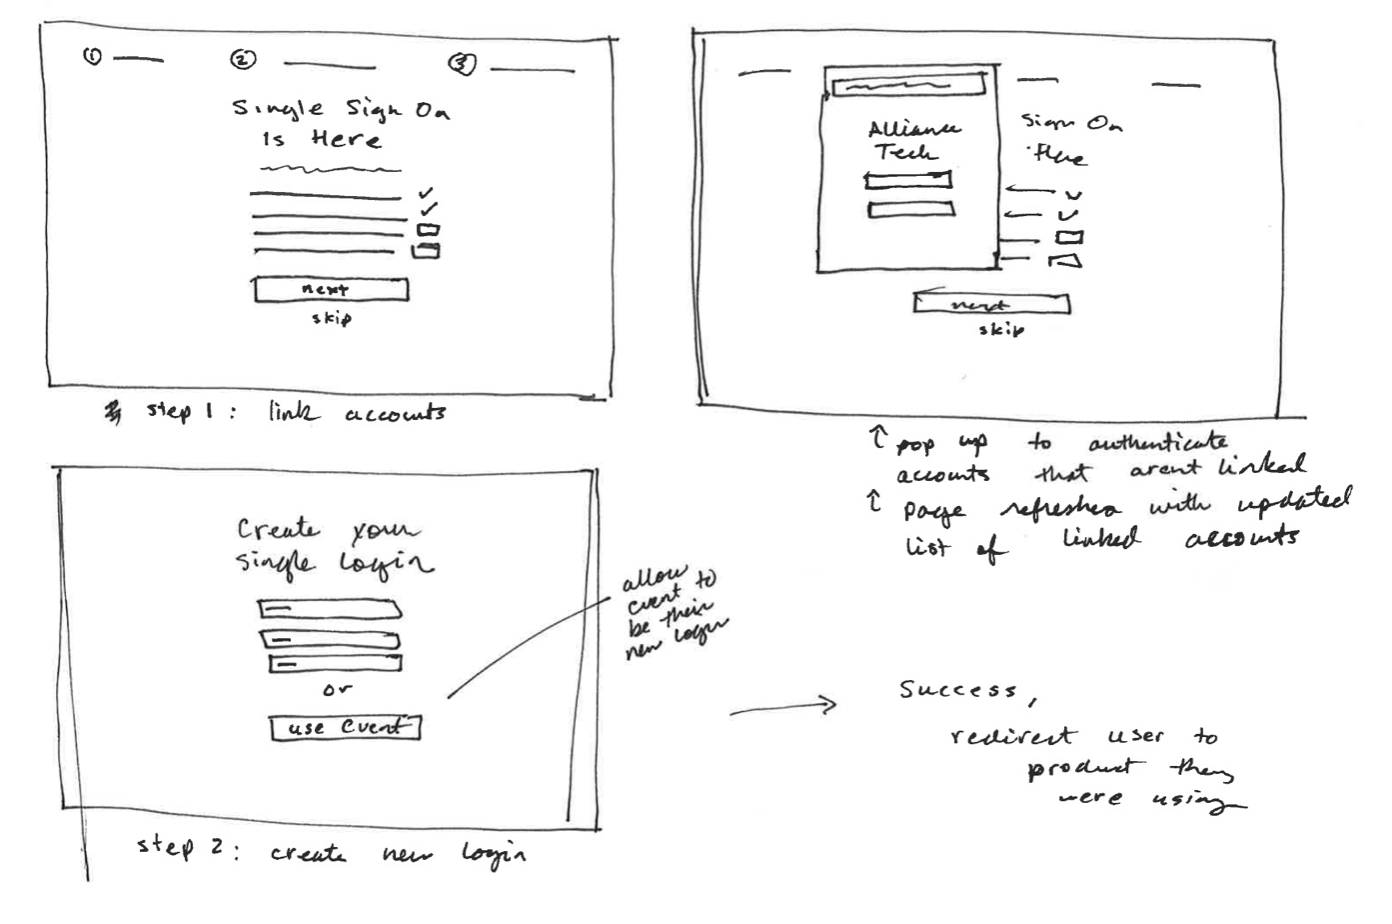 1
2
3
Single Sign On
Is Here
next
skip
step 1: link accounts
Alliance
Tech
Sign On
Here
next
skip
↑ pop up to authenticate
accounts that arent linked
↑ page refreshes with updated
list of linked accounts
Create your
single login
or
use Event
step 2: create new login
allow
event to
be their
new login
Success,
redirect user to
product they
were using